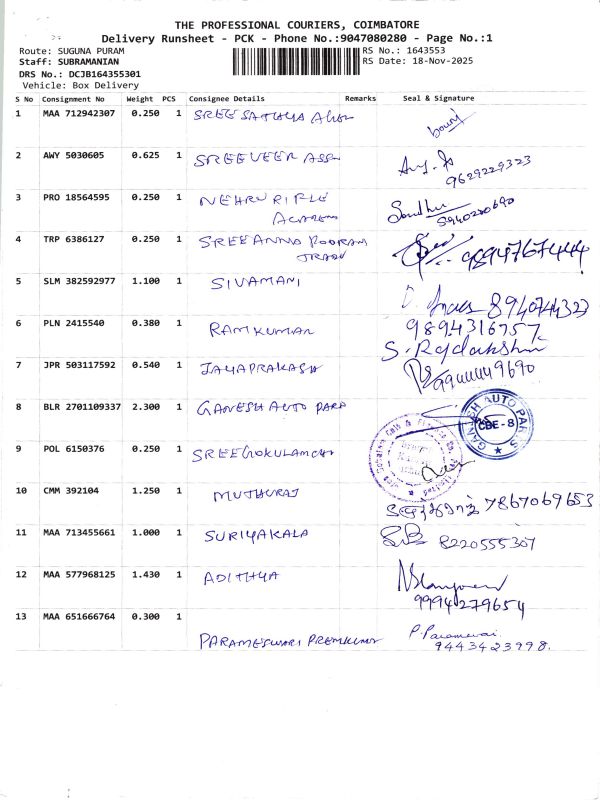 THE PROFESSIONAL COURIERS, COIMBATORE
Delivery Runsheet - PCK - Phone No.:9047080280 - Page No.:1
Route: SUGUNA PURAM
RS No.: 1643553
Staff: SUBRAMANIAN
RS Date: 18-Nov-2025
DRS No.: DCJB164355301
Vehicle: Box Delivery
S No Consignment No Weight PCS Consignee Details Remarks Seal & Signature
1 MAA 712942307 0.250 1 SREE SATHYA
2 AWY 5030605 0.625 1 SREEVEER ASSN
9629229323
3 PRO 18564595 0.250 1 NEHRU RIFLE
ACADEMY
Sandhu
4 TRP 6386127 0.250 1 SREE ANNA POORANI
9894767444
5 SLM 382592977 1.100 1 SIVAMANI
8940744323
6 PLN 2415540 0.380 1 RAMKUMAR
9894316757
S. Rajdarkshni
7 JPR 503117592 0.540 1 JAYAPRAKASH
8 BLR 2701109337 2.300 1 GANESH AUTO PARP
GANESH AUTO PARTS
CBE - 8
9 POL 6150376 0.250 1 SREEGOKULAM CH
10 CMM 392104 1.250 1 MUTHURAJ 7867069653
11 MAA 713455661 1.000 1 SURIYAKALA
8220555307
12 MAA 577968125 1.430 1 ADITHYA
9994279654
13 MAA 651666764 0.300 1
PARAMESWARI PREMKUMAR
9443423998.